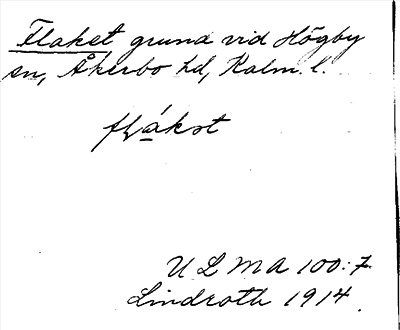 Flaket grund vid Högby
sn, Åkerbo hd, Kalm. l.
flákət
ULMA 100:7.
Lindroth 1914.